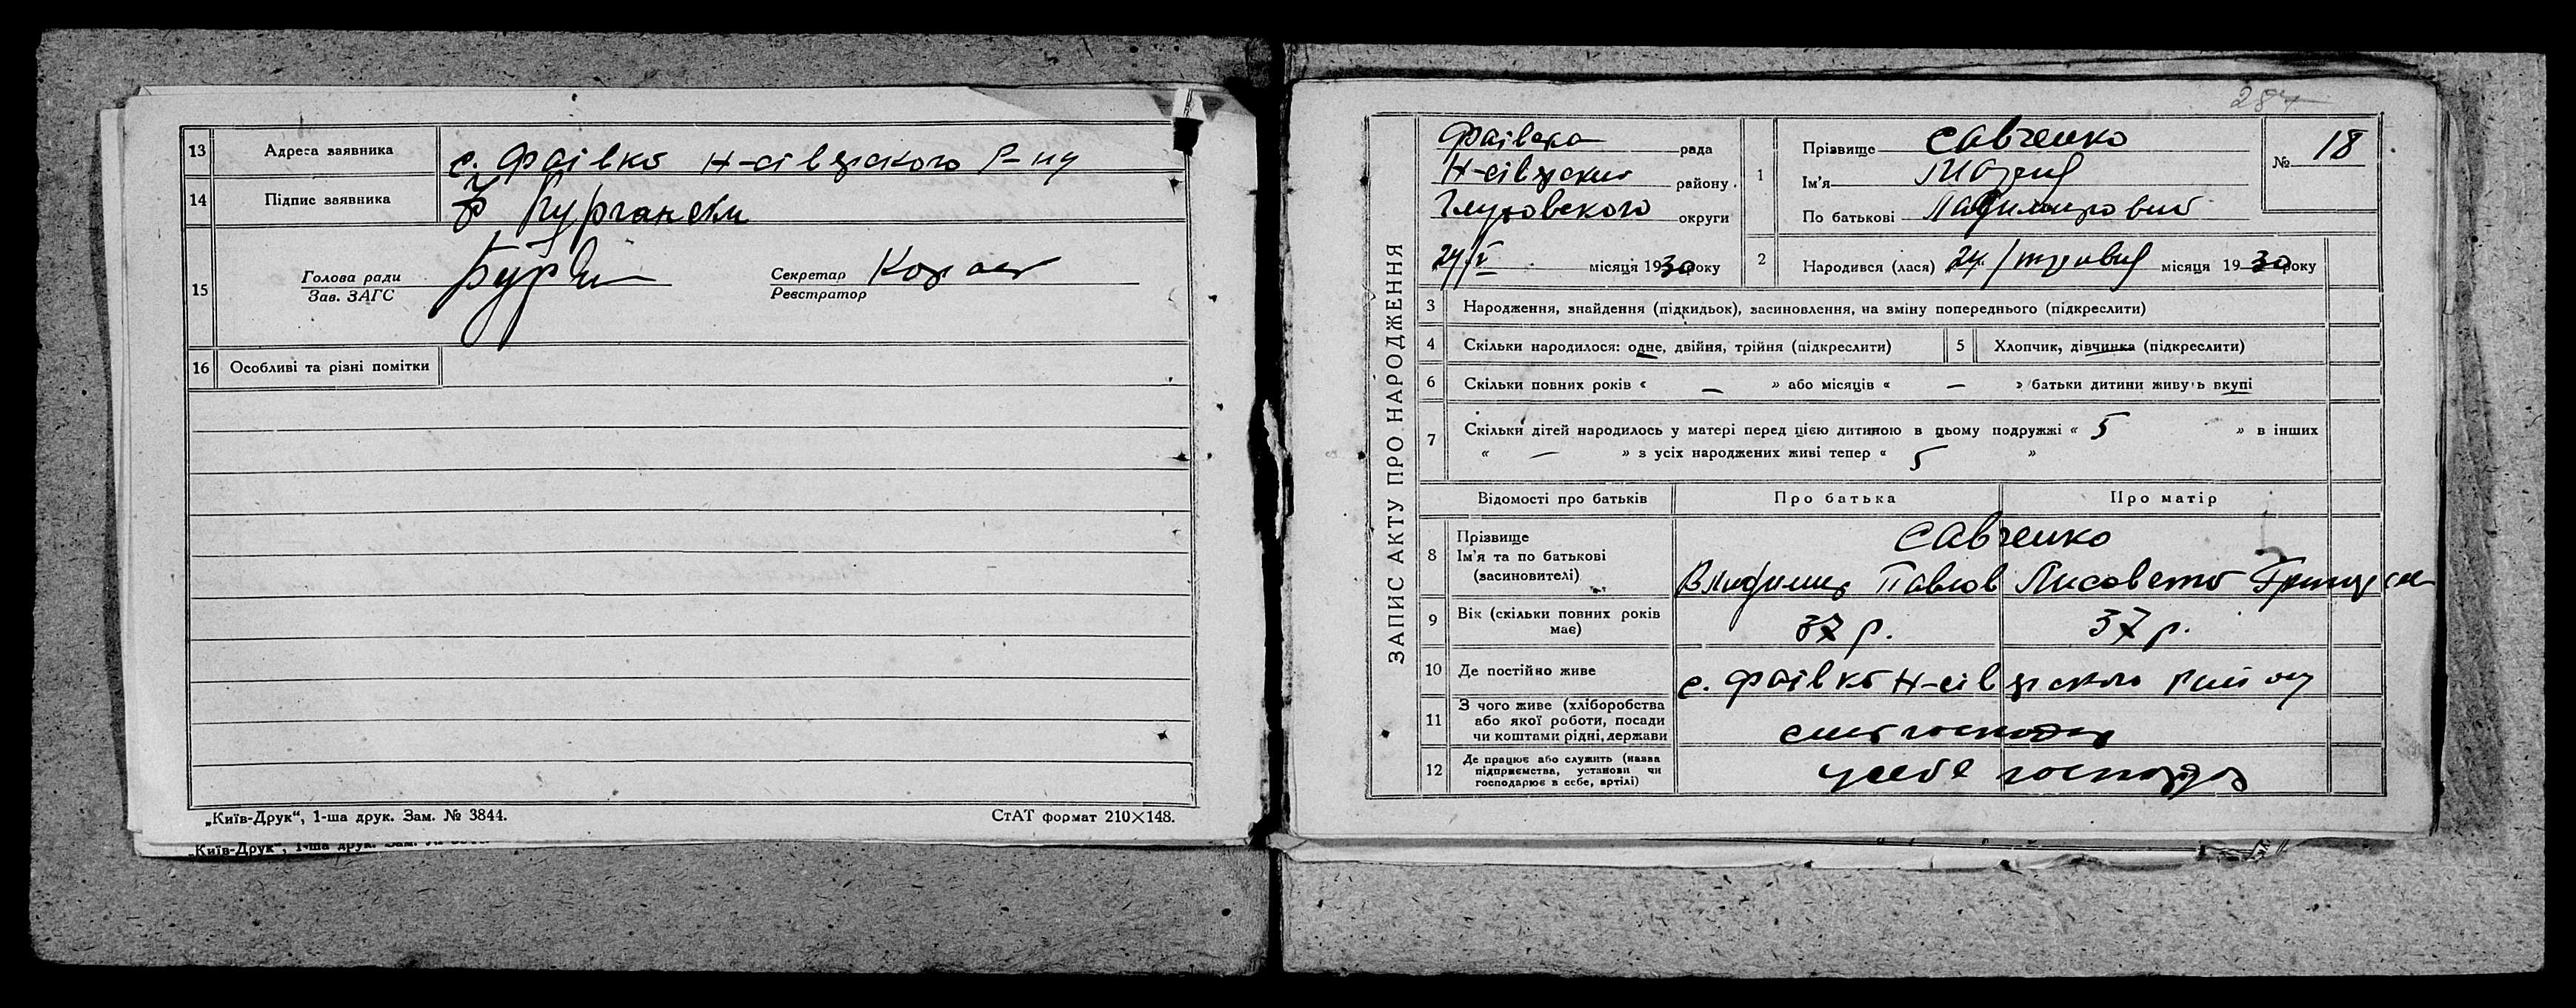 13 Адреса заявника с. Фаівка Н-сіверского Р-ну
14 Підпис заявника
15 Голова ради Секретар
Зав. ЗАГС Реєстратор
16 Особливі та різні помітки
„Київ-Друк“, 1-ша друк. Зам. № 3844. СтАТ формат 210×148.
„Київ-Друк“, 1-ша друк. Зам.
ЗАПИС АКТУ ПРО НАРОДЖЕННЯ
Фаівска рада
Н-сіверский району.
Глуховского округи
24/V місяця 1930 року
1 Прізвище Савченко
Ім'я Мария
По батькові
№ 18
2 Народився (лася) 24 / травня місяця 1930 року
3 Народження, знайдення (підкидьок), засиновлення, на зміну попереднього (підкреслити)
4 Скільки народилося: одне, двійня, трійня (підкреслити) 5 Хлопчик, дівчинка (підкреслити)
6 Скільки повних років « — » або місяців « — » батьки дитини живуть вкупі
7 Скільки дітей народилось у матері перед цією дитиною в цьому подружжі « 5 » в інших
« — » з усіх народжених живі тепер « 5 »
Відомості про батьків Про батька Про матір
8 Прізвище
Ім'я та по батькові
(засиновителі)
Савченко
Владимир Павлов Лисавета
9 Вік (скільки повних років
має)
37 р. 37 р.
10 Де постійно живе с. Фаівка Н-сіверского району
11 З чого живе (хліборобства
або якої роботи, посади
чи коштами рідні, держави
12 Де працює або служить (назва
підприємства, установи чи
господарює в себе, артілі)